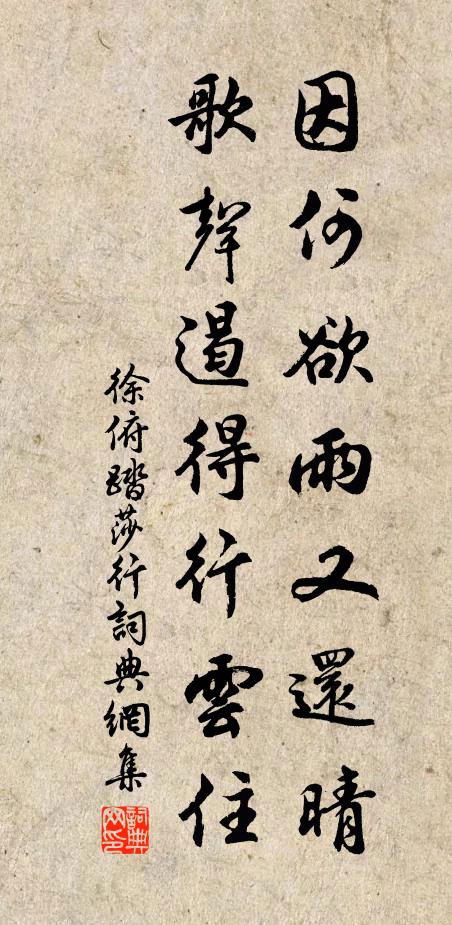 因何欲雨又還晴
歌聲遏得行雲住
徐俯踏莎行詞典網集
詞典网印